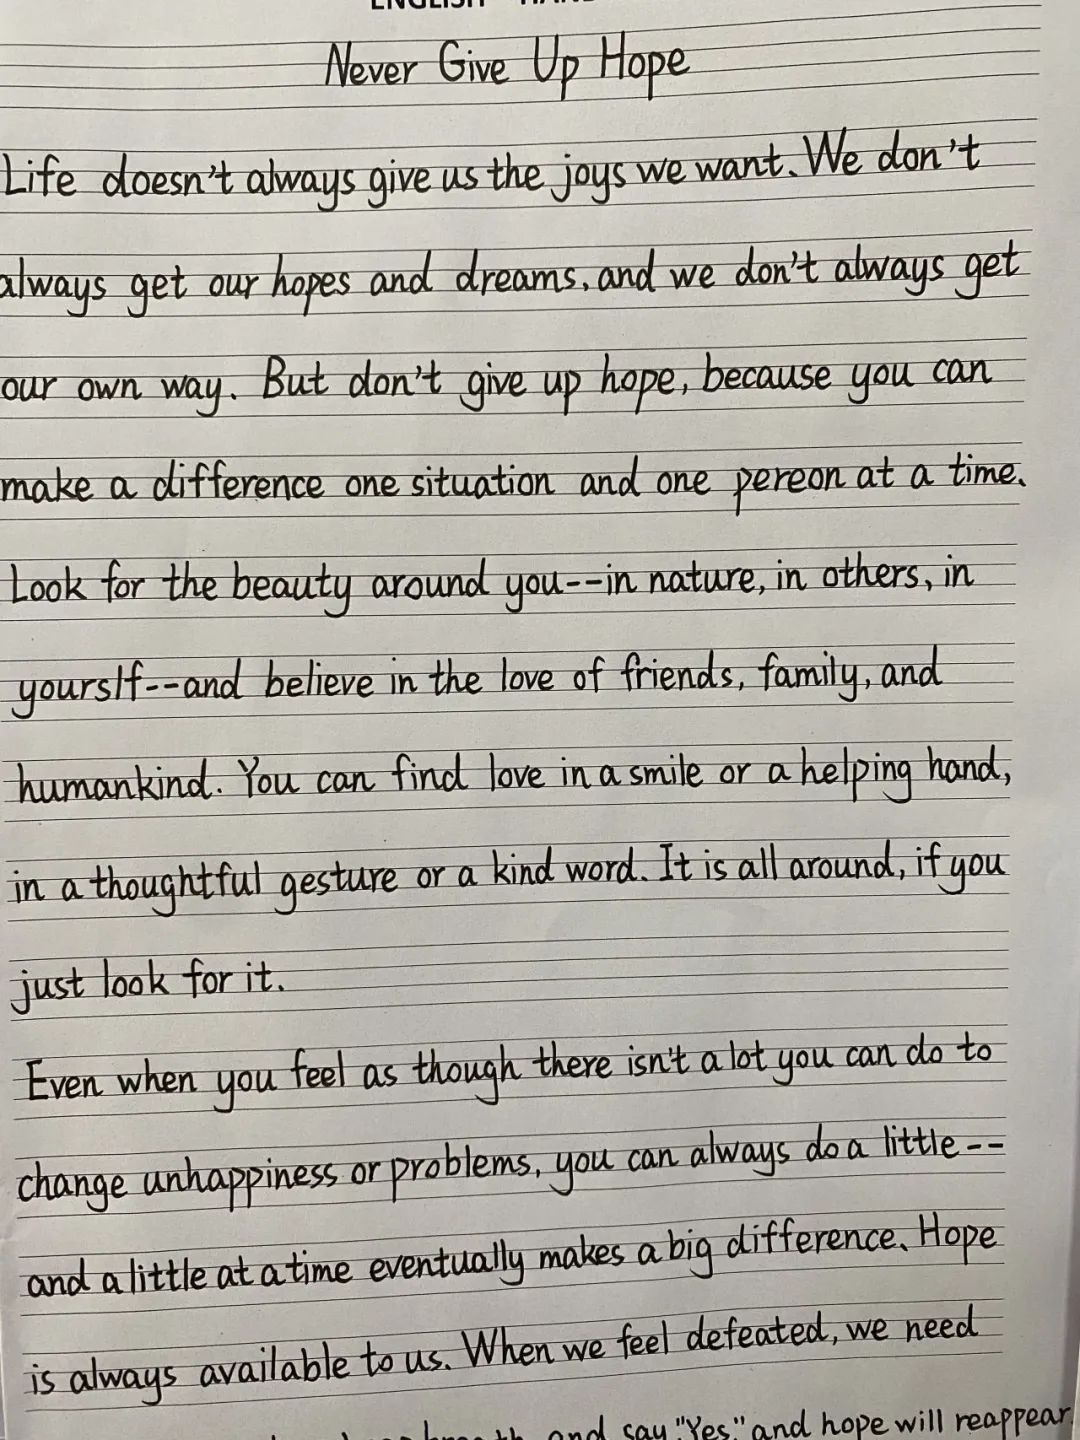 Never Give Up Hope
Life doesn't always give us the joys we want. We don't
always get our hopes and dreams, and we don't always get
our own way. But don't give up hope, because you can
make a difference one situation and one pereon at a time.
Look for the beauty around you--in nature, in others, in
yourslf--and believe in the love of friends, family, and
humankind. You can find love in a smile or a helping hand,
in a thoughtful gesture or a kind word. It is all around, if you
just look for it.
Even when you feel as though there isn't a lot you can do to
change unhappiness or problems, you can always do a little--
and a little at a time eventually makes a big difference. Hope
is always available to us. When we feel defeated, we need
and say "Yes," and hope will reappear